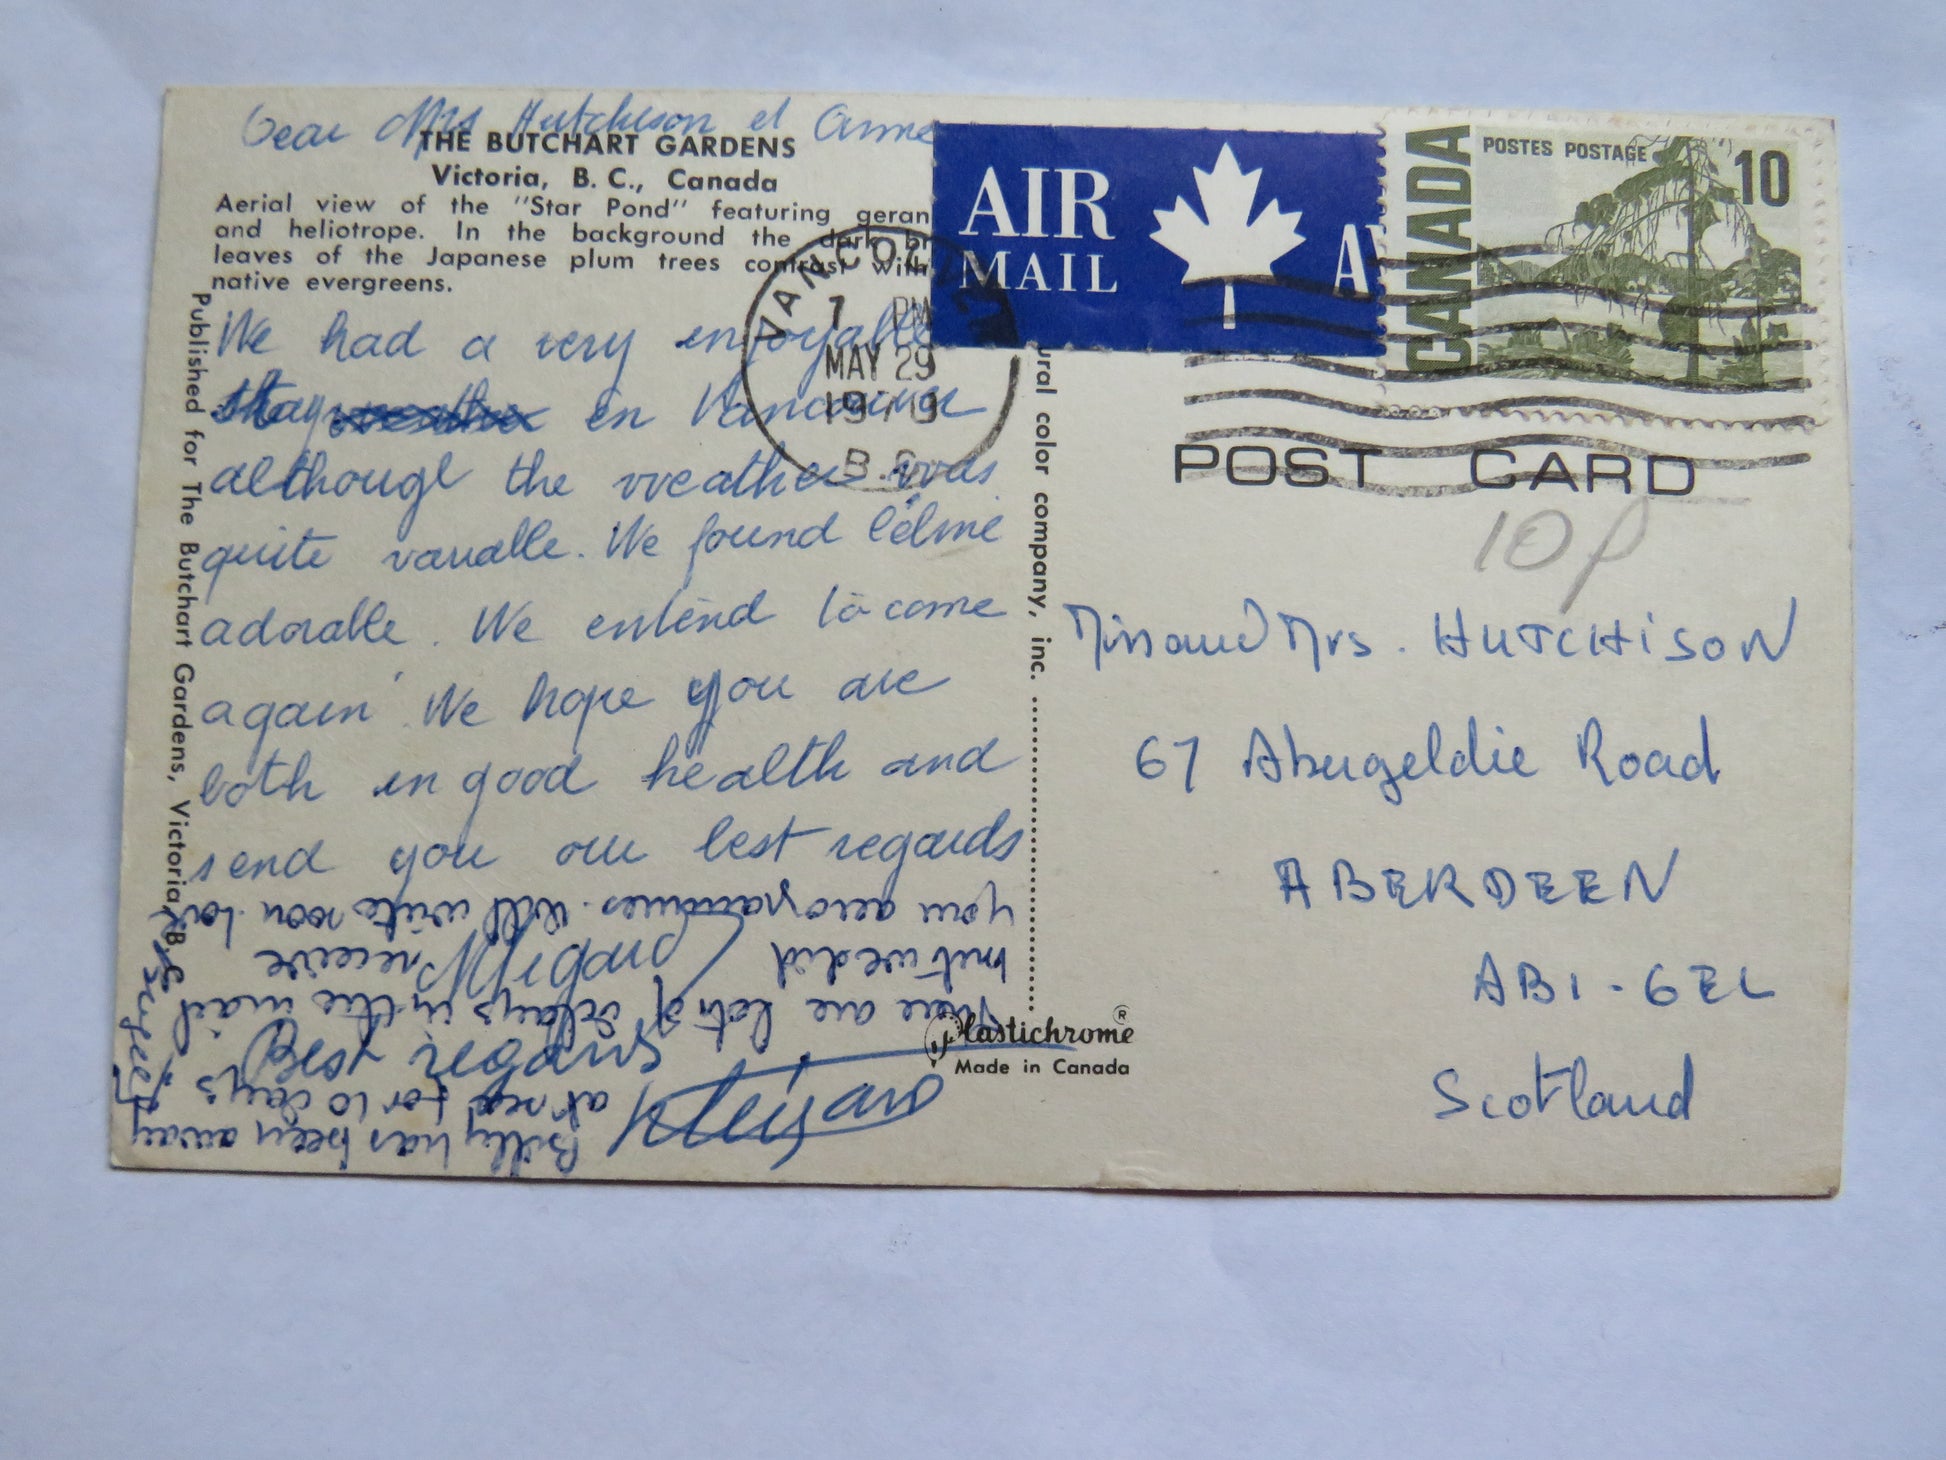 Dear Mrs Hutchison et Anne
THE BUTCHART GARDENS
Victoria, B. C., Canada
Aerial view of the "Star Pond" featuring geran
and heliotrope. In the background the dark br
leaves of the Japanese plum trees contrast with
native evergreens.
We had a very enjoyable
stay en Vancouver
although the weather was
quite variable. We found Céline
adorable. We entend to come
again. We hope you are
both in good health and
send you our best regards
Best regards
Published for The Butchart Gardens, Victoria, B.C.
Billy has been away
at sea for 10 days
There are lots of delays in the mail
but we did receive
your aerogrammes. Will write soon. Love
ural color company, inc.
Plastichrome ®
Made in Canada
AIR
MAIL
AV
VANCOUVER
7 PM
MAY 29
1979
B.C.
CANADA
POSTES POSTAGE
10
POST CARD
10p
Miss and Mrs. HUTCHISON
67 Abergeldie Road
ABERDEEN
AB1-6EL
Scotland